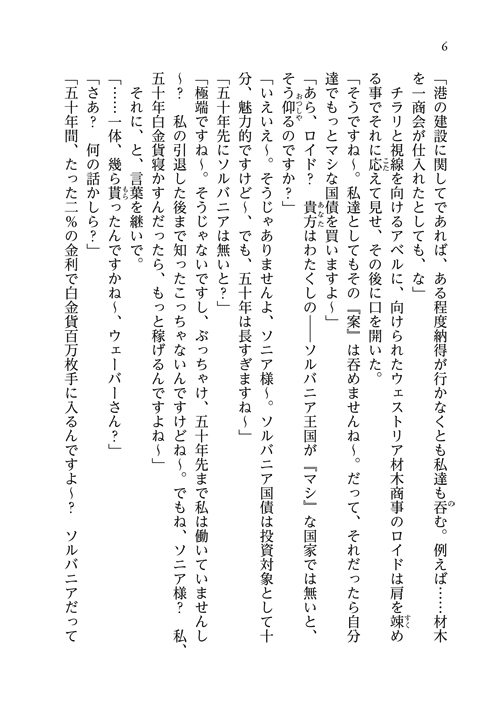 6
「港の建設に関してであれば、ある程度納得が行かなくとも私達も呑む。例えば……材木
を一商会が仕入れたとしても、な」
チラリと視線を向けるアベルに、向けられたウェストリア材木商事のロイドは肩を竦め
る事でそれに応えて見せ、その後に口を開いた。
「そうですね～。私達としてもその『案』は呑めませんね～。だって、それだったら自分
達でもっとマシな国債を買いますよ～」
「あら、ロイド？　貴方はわたくしの――ソルバニア王国が『マシ』な国家では無いと、
そう仰るのですか？」
「いえいえ～。そうじゃありませんよ、ソニア様～。ソルバニア国債は投資対象として十
分、魅力的ですけど～、でも、五十年は長すぎますね～」
「五十年先にソルバニアは無いと？」
「極端ですね～。そうじゃないですし、ぶっちゃけ、五十年先まで私は働いていませんし
～？　私の引退した後まで知ったこっちゃないんですけどね～。でもね、ソニア様？　私、
五十年白金貨寝かすんだったら、もっと稼げるんですよね～」
それに、と、言葉を継いで。
「……一体、幾ら貰ったんですかね～、ウェーバーさん？」
「さあ？　何の話かしら？」
「五十年間、たった二％の金利で白金貨百万枚手に入るんですよ～？　ソルバニアだって